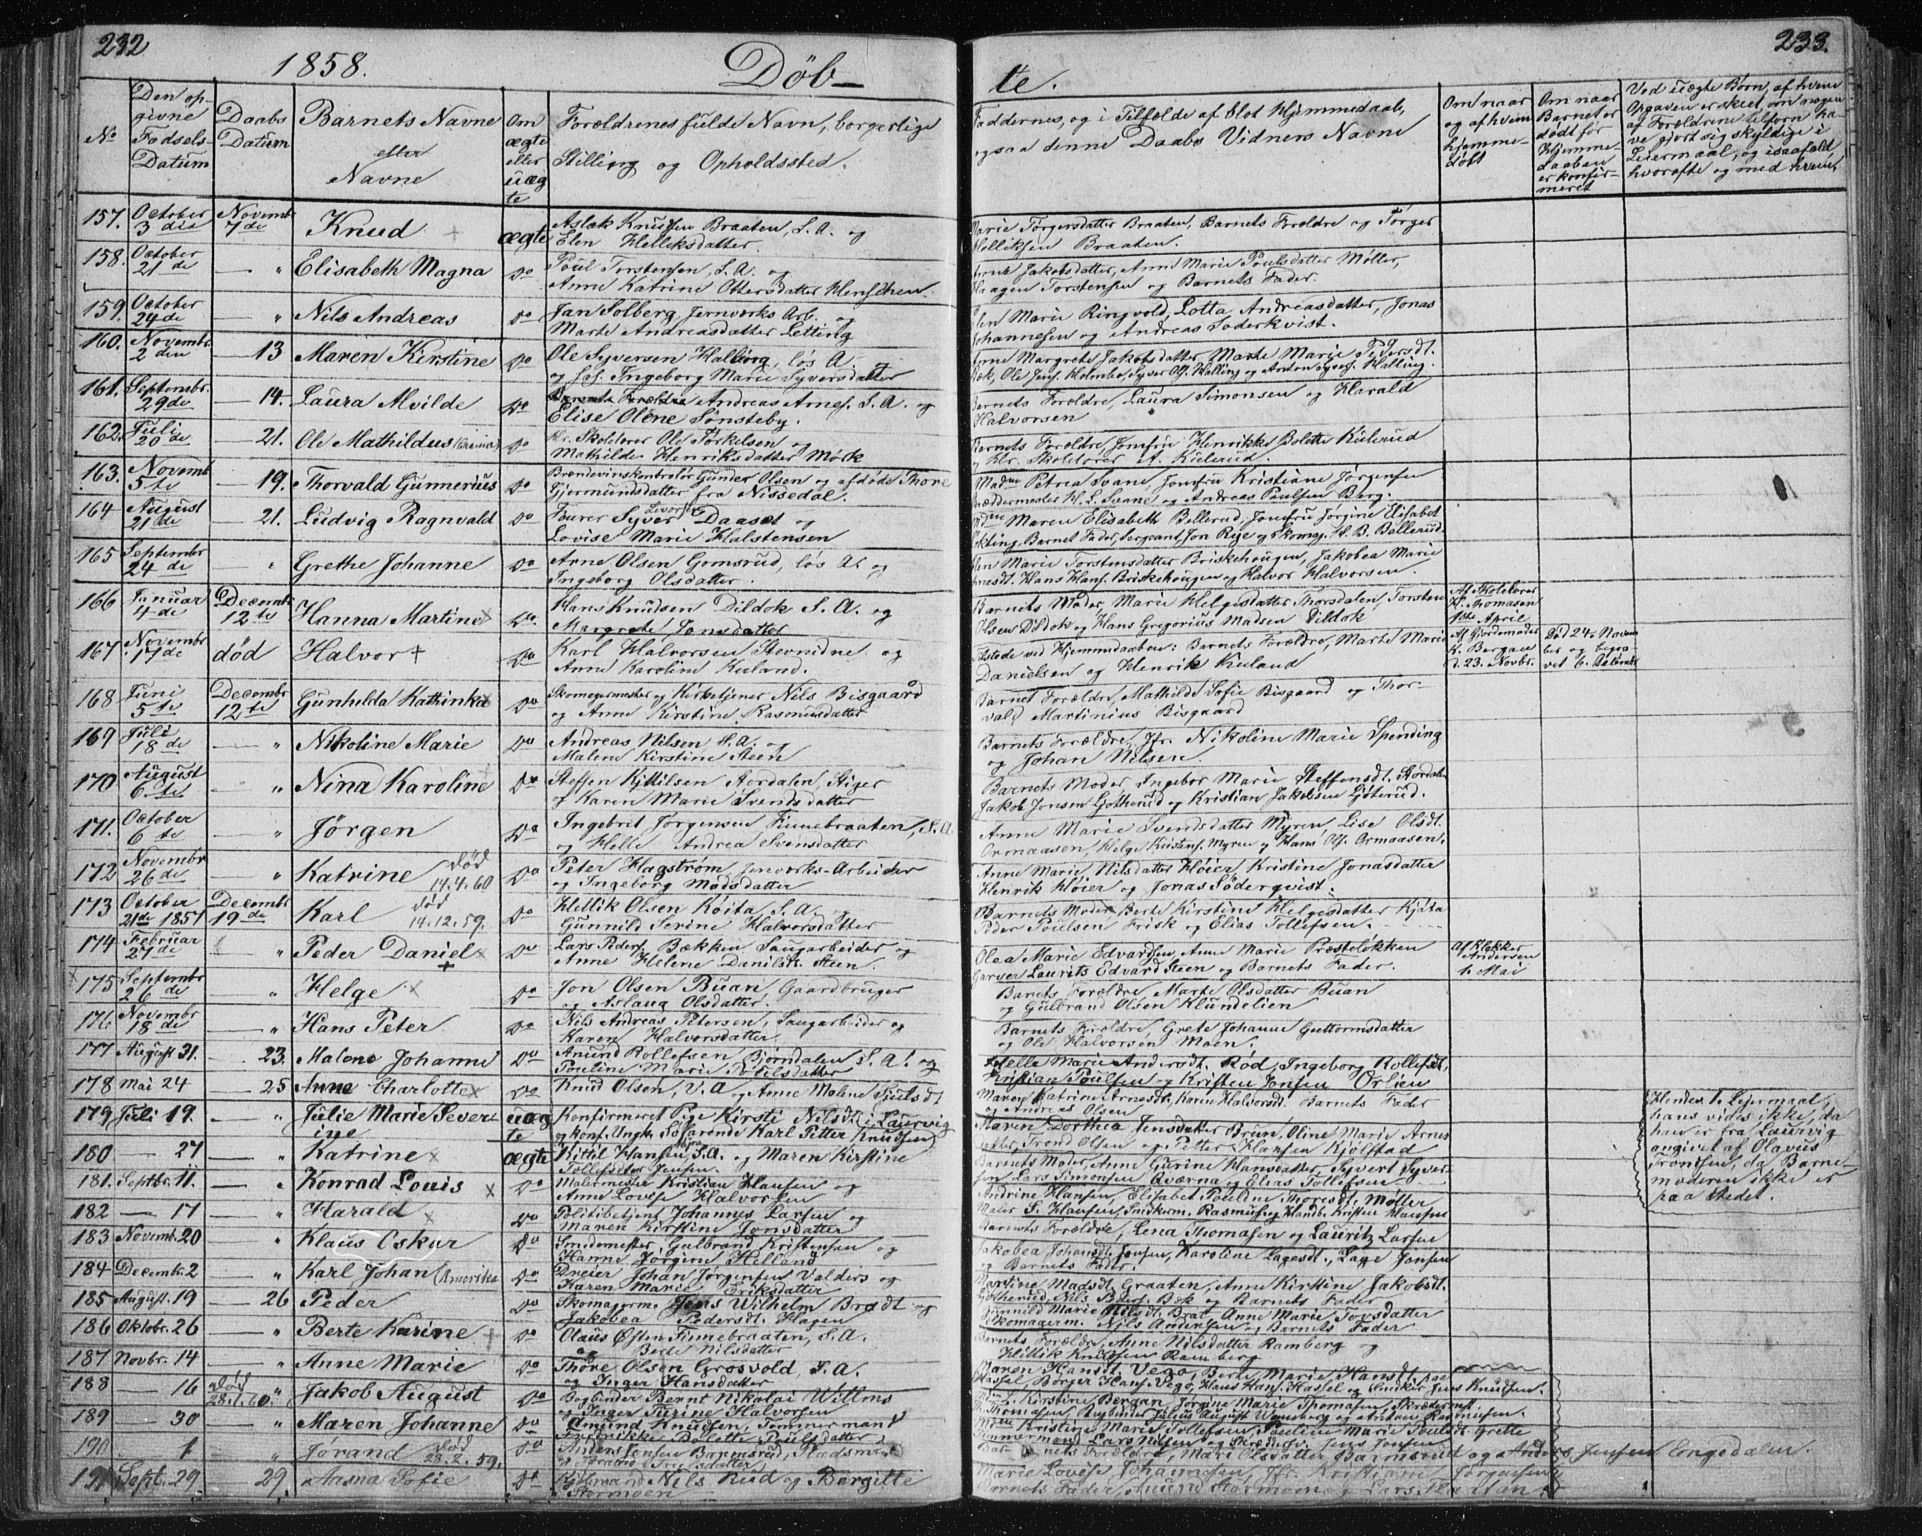 232
1858.
Döb-
te.
233.
No
Den op-
givne
Fødsels-
Datum
Daabs
Datum
Barnets Navne
eller
Navne
Om
ægte
eller
uæg
te
Forældrenes fulde Navn, borgerlige
Stilling og Opholdssted.
Faddernes, og i Tilfælde af blot Hjemmedaab,
ogsaa denne Daabs Vidners Navne
Om naar
og af hvem
hjemme-
døbt
Om naar
Barnet er
dødt før
Hjemme-
daaben
er konfir-
meret
Ved uægte Børn, af hvem
Opgaven er skeet, om nogen
af Forældrene tilforn ha-
ve gjort sig skyldige i
Leiermaal, og i saafald
hvorofte og med hvem
157. October 3die Novembr 7de Knud ægte Aslak Knutsen Braaten, S. A. og
Elen Kittilsdatter. Marie Torgersdatter Braaten, Barnets Forældre og Torger
Braaten.
158. October 21de — " Elisabeth Magna Do Poul Torstensen, S. A. og
Anne Katrine Ottersdatter Jakobsdatter, Anne Marie Poulsdatter Møller,
Haagen Torstensen og Barnets Fader.
159. October 24de — " Nils Andreas Do Jan Solberg, Jernværks Arb. og
Marte Andreasdatter Letting Elen Marie Ringvold, Lotta Andreasdatter, Jonas
Johannesen og Andreas Soderkvist.
160. Novembr 2den — 13 Maren Kirstine Do Ole Syversen Halling, løs A.
og Ingeborg Marie Syversdatter Anne Margrete Jakobsdatter, Marte Marie
161. Septembr. 29de — 14. Laura Alvilde Do Barnets Forældre Andreas Arnes. S. A. og
Elise Olene Sønsteby. Barnets Forældre, Laura Simonsen og Harald
Halvorsen
162. Juli 20de — 21. Ole Mathildus Do Kr. Skolelærer Ole Torkelsen og
Mathilde Henriksdatter Mørk Barnets Forældre, Jomfru Henrikke Bolette Kulerud
og Kr. Skolelærer Kulerud.
163. Novemb 5te — 19. Thorvald Gunnerius Do Brændevinskontrolør Gunder Olsen og afdøde Thore
Gjermundsdatter fra Nissedal. Petrea Svane, Jomfru Kristiane Jørgensen
H. S. Svane og Andreas Paulsen Berg.
164 August 21de — 21. Ludvig Ragnvald Do Furer Syver Daaset og
Lovise Marie Halstensen Maren Elisabeth Bellerud, Jomfru Jørgine Elisabet
Barnets Fader, Sergeant Jon Rye og Skomag. H. B. Bellerud.
165 Septembr 24de " Grethe Johanne Do Arne Olsen Gomsrud, løs A. og
Ingeborg Olsdatter. Marie Torstensdatter Briskehougen, Jakobea Marie
Hans Hans. Briskehougen og Halvor Halvorsen.
166 Januar 4de Decemb 12te Hanna Martine Do. Hans Knudsen Dildok S. A. og
Margrete Jonsdatter Barnets Moder, Marie Helgesdatter Thorsdalen, Torsten
Olsen Dildok og Hans Gregorius Madsen Dildok Af Skolelærer
Thomasen
April
167 Novembr 17de død Halvor Do Karl Halvorsen Stevnedne og
Anne Karoline Kuland. ved Hjemmedaaben: Barnets Forældre, Marte Marie
Danielsen og Henrik Kuland Af Jordemoder
K. Bergan
d. 23. Novbr. Død 24. Novem
ber og begra-
vet 6. Decembr
168 Juni 5te Decembr 12te Gunhilda Kathinka Do Skomagermester og Kirketjener Nils Bisgaard
og Anne Kirstine Rasmusdatter Barnets Forældre, Mathilde Sofie Bisgaard og Thor-
vald Martinius Bisgaard
169 Juli 18de — " Nikoline Marie Do Andreas Nilsen S. A. og
Malene Kirstine Steen Barnets Forældre, Jfr. Nikoline Marie Spending
og Johan Nilsen.
170 August 6te — " Nina Karoline Do Steffen Kittilsen Aordalen, Stiger
og Karen Marie Svendsdatter Barnets Moder Ingebor Marie Steffensdt.
Jakob Jensen Gotherud og Kristian Jakobsen
171. October 6te — " Jørgen Do Ingebret Jørgensen Finnebraaten, S. A.
og Helle Andrea Svensdatter Anne Marie Svendsdatter Myren Lise Olsdt.
Ormaasen, Helge Kristens. Myren og Hans Ols. Ormaasen.
172 Novembr 26de — " Katrine død
14.4.60 Do Peter Hagstrøm, Jernværks-Arbeider
og Ingeborg Madsdatter Anne Marie Nilsdatter Høier, Kristine Jonasdatter
Henrik Høier og Jonas Söderqvist.
173 October 21de 1857 Decembr 19de Karl død
14.12.59. Do Kittil Olsen Koita S. A.
Gunnild Serine Halvorsdatter Barnets Moder, Berte Kirstine Helgesdatter Kjøta
Peder Poulsen Frisk og Elias Tollefsen.
174 Februar 27de " Peder Daniel Do Lars Peders. Bækken Saugarbeider og
Anne Helene Danilsdt. Steen Olea Marie Edvardsen, Anne Marie Præsteløkken
Garver Laurits Edvard Steen og Barnets Fader. Af Klokker
Andersen
1. Mai
175 Septembr 26de " Helge Do Jon Olsen Buan, Gaardbruger
og Aslaug Olsdatter. Barnets Forældre, Marte Olsdatter Buan
og Gulbrand Olsen Klundelien
176 Novembr 18de — " Hans Peter Do Nils Andreas Petersen, Saugarbeider og
Karen Halvorsdatter. Barnets Forældre, Grete Johanne Guttormsdatter
og Ole Halvorsen Moen.
177 August 31. — 23. Malene Johanne Do Amund Rollefsen Bjørndalen S. A. og
Pouline Marie Nilsdatter Helle Marie Andersdt. Rød, Ingeborg Rollefsdt.
Kristian Poulsen og Kristen Jensen Orlien
178 Mai 24 — 25 Anne Charlotte Do Knud Olsen, V. A og Anne Malene Maren Katrine Arnesdt. Karen Halvorsdt. Barnets Fader
og Andreas Olsen
179 Juli 19. — " Julie Marie Sever
ine uæg
te Konfirmeret Pige Kirsti Nilsdt. i Laurvig
og konf. Ungk. Søfarende Karl Petter Knudsen Maren Dorthea Jensdatter Brun, Oline Marie Arnes
datter, Trond Olsen og Petter Hansen Kjølstad Hendes 1. Leiermaal,
hans vides ikke, da
han er fra Laurvig
angivet af Olavus
Trondsen, da Barne-
moderen ikke er
paa Stedet.
180 — 27 — " Katrine ægte Kittil Hansen S. A. og Maren Kirstine
Tollefsdatter Jensen. Barnets Moder, Anne Gurine Hansdatter, Syvert Syver
sen, Lars Simonsen Qværna og Elias Tollefsen
181. Septbr. 11. — " Konrad Louis Do Malermester Kristian Hansen og
Anne Lovise Halvorsen Andrine Hansen, Elisabet Pouline Thoresdt. Møller
Maler S. Hansen, Rasmus og Handb. Kristen Hansen
182 — 17 " Harald Do Politibetjent Johannes Larsen og
Maren Kirstine Jonsdatter Barnets Forældre, Lena Thomasen og Lauritz Larsen
183 Novemb. 20 " Klaus Oskar Do Smedemester Gulbrand Kristensen og
Hanne Jørgine Helland Jakobea Johansdt. Jensen, Karoline Lagesdt., Lage Jensen
og Barnets Fader.
184 Decemb. 2 " Karl Johan (Amerika Do Dreier Johan Jørgensen Valders og
Karen Marie Eriksdatter Martine Madsdt. Graaten, Anne Kirstine Jakobsdt.
Gotherud, Nils Peders. Bæk og Barnets Fader
185 August 19 — 26 Peder Do Skomagerm. Jens Wilhelm Brodt og
Jakobea Pedersdt. Hagen Gunnild Marie Nilsdt. Brat Anne Marie Toresdatter
Skomagerm. Nils Andersen og Barnets Fader
186 Oktobr. 26 — " Berte Karine Do Claus Olsen Finnebraaten, S. A.
og Berte Nilsdatter Barnets Forældre, Anne Nilsdatter Ramberg og
Kittik Knudsen Ramberg
187 Novbr. 14 — " Anne Marie Do Thore Olsen Grosvold, S. A.
og Inger Hansdatter Maren Hansdt. Vego, Berte Marie Hansdt.
Hassel Børger Hans. Vego, Hans Hans. Hassel og Jens Knudsen.
188 — 16 død
28.1.60 " Jakob August Do Bøgbinder Bernt Nikolai Willms
og Inger Turine Halvorsen Kirstine Bergan, Jørgine Marie Thomasen, Skrædermst.
Thomasen, Bugbinder Julius August Wennberg og Rasmusen.
189 — 30 " Maren Johanne Do Amund Knudsen, Tømmermand
Fredrikke Bolette Poulsdatter Kristine Marie Tollefsen, Pauline Marie Poulsdt. Grette
Tømmermand Lars Nilsen og Jens Jensen
190 — 1 " Jørand død
28.2.59. Do Anders Jensen
Barnets Forældre, Mari Olsdatter og Anders Jensen Engedalen.
191 Sept. 29 29. Anna Sofie Do Nils Rud og Bergitte
Stormoen Marie Lovise Johannesen, Jfr. Kristiane Jørgensen
Barnets Fader, Amund Stormoen og Lars